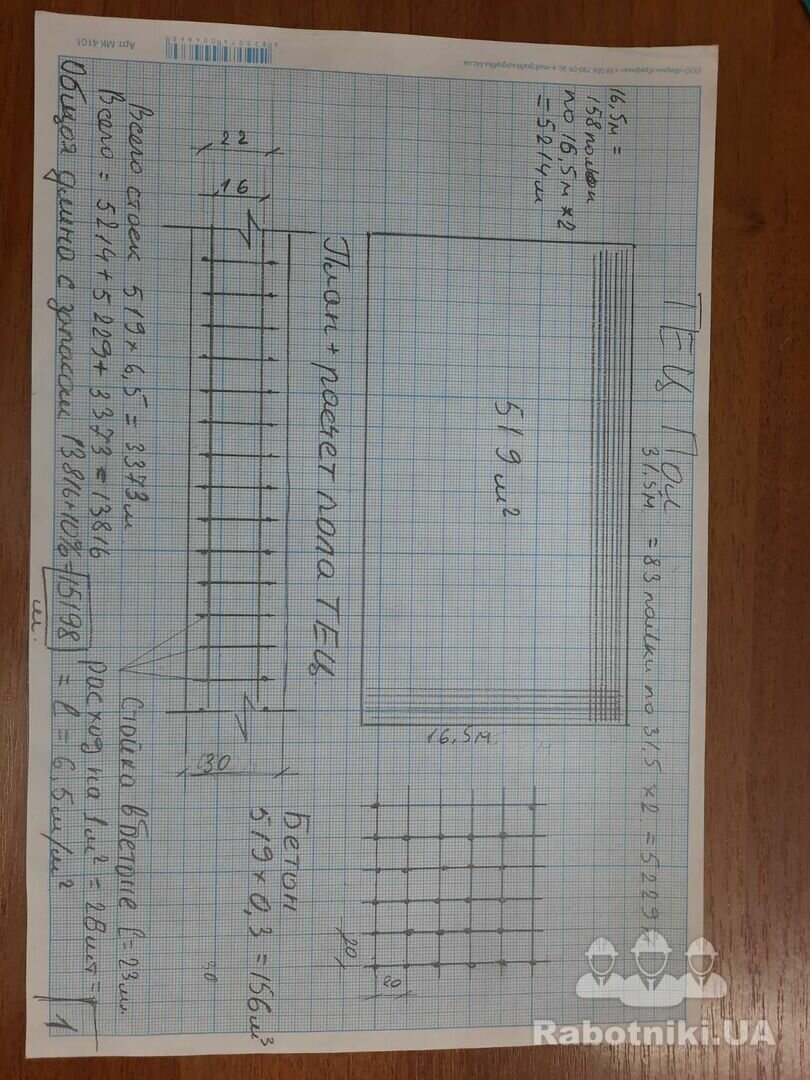 ТЕЦ Пол.
31,5м = 83 палки по 31,5 × 2 = 5229 м
16,5м =
158 палки
по 16,5м × 2
= 5214м
519 м²
16,5м
м
20
20
План + расчет пола ТЕЦ
22
16
30
Бетон
519 × 0,3 = 156 м³
30
Стойка в бетоне ℓ = 23 мм
Расход на 1 м² = 28 шт =
= ℓ = 6,5 м/м²
Всего стоек 519 × 6,5 = 3373 м
Всего = 5214 + 5229 + 3373 = 13816
Общая длина с запасом 13816 + 10% = 15198
м.
1
ООО «Фирма «Графика»
Арт. МК 4101
Rabotniki.UA